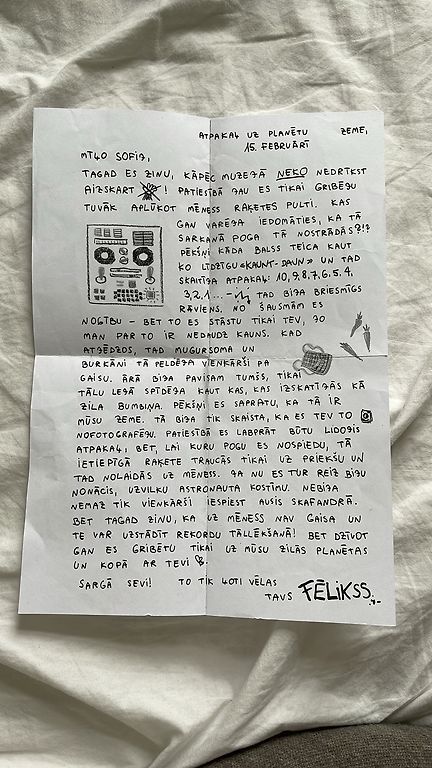 ATPAKAĻ UZ PLANĒTU ZEME,
15. FEBRUĀRĪ
MĪĻO SOFIJA,
TAGAD ES ZINU, KĀPĒC MUZEJĀ NEKO NEDRĪKST
AIZSKART! PATIESĪBĀ JAU ES TIKAI GRIBĒJU
TUVĀK APLŪKOT MĒNESS RAĶETES PULTI. KAS
GAN VARĒJA IEDOMĀTIES, KA TĀ
SARKANĀ POGA TĀ NOSTRĀDĀS?!?
PĒKŠŅI KĀDA BALSS TEICA KAUT
KO LĪDZĪGU «KAUNT-DAUN» UN TAD
SKAITĪJA ATPAKAĻ: 10, 9, 8, 7, 6, 5, 4,
3, 2, 1 ... - TAD BIJA BRIESMĪGS
RĀVIENS. NO ŠAUSMĀM ES
NOĢĪBU - BET TO ES STĀSTU TIKAI TEV, JO
MAN PAR TO IR NEDAUDZ KAUNS. KAD
ATJĒDZOS, TAD MUGURSOMA UN
BURKĀNI TĀ PELDĒJA VIENKĀRŠI PA
GAISU. ĀRĀ BIJA PAVISAM TUMŠS, TIKAI
TĀLU LEJĀ SPĪDĒJA KAUT KAS, KAS IZSKATĪJĀS KĀ
ZILA BUMBIŅA. PĒKŠŅI ES SAPRATU, KA TĀ IR
MŪSU ZEME. TĀ BIJA TIK SKAISTA, KA ES TEV TO
NOFOTOGRAFĒJU. PATIESĪBĀ ES LABPRĀT BŪTU LIDOJIS
ATPAKAĻ, BET, LAI KURU POGU ES NOSPIEDU, TĀ
IETIEPĪGĀ RAĶETE TRAUCĀS TIKAI UZ PRIEKŠU UN
TAD NOLAIDĀS UZ MĒNESS. JA NU ES TUR REIZ BIJU
NONĀCIS, UZVILKU ASTRONAUTA KOSTĪMU. NEBIJA
NEMAZ TIK VIENKĀRŠI IESPIEST AUSIS SKAFANDRĀ.
BET TAGAD ZINU, KA UZ MĒNESS NAV GAISA UN
TE VAR UZSTĀDĪT REKORDU TĀLLĒKŠANĀ! BET DZĪVOT
GAN ES GRIBĒTU TIKAI UZ MŪSU ZILĀS PLANĒTAS
UN KOPĀ AR TEVI
SARGĀ SEVI! TO TIK ĻOTI VĒLAS
TAVS FĒLIKSS